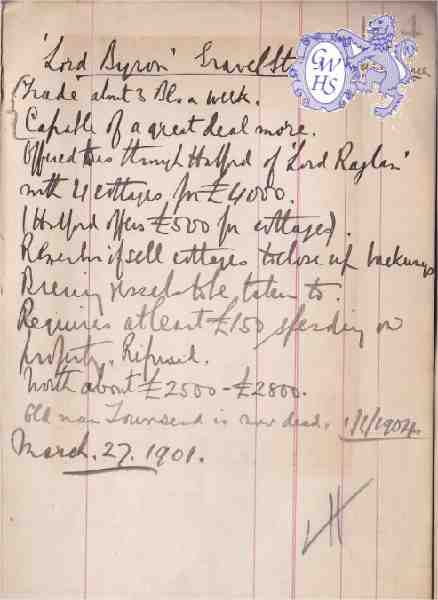 'Lord Byron' Gravel St
GWHS
Trade about 3 Bls. a week.
Capable of a great deal more.
Offered this through Halford of 'Lord Raglan'
with 4 cottages for £4000.
(Halford offers £500 for cottages).
Remember if sell cottages to close up backways
Brewing vessels to be taken to.
Requires at least £150 spending on
property. Refused.
Worth about £2500 - £2800.
Old man Townsend is now dead. 1/1/1904.
March. 27. 1901.